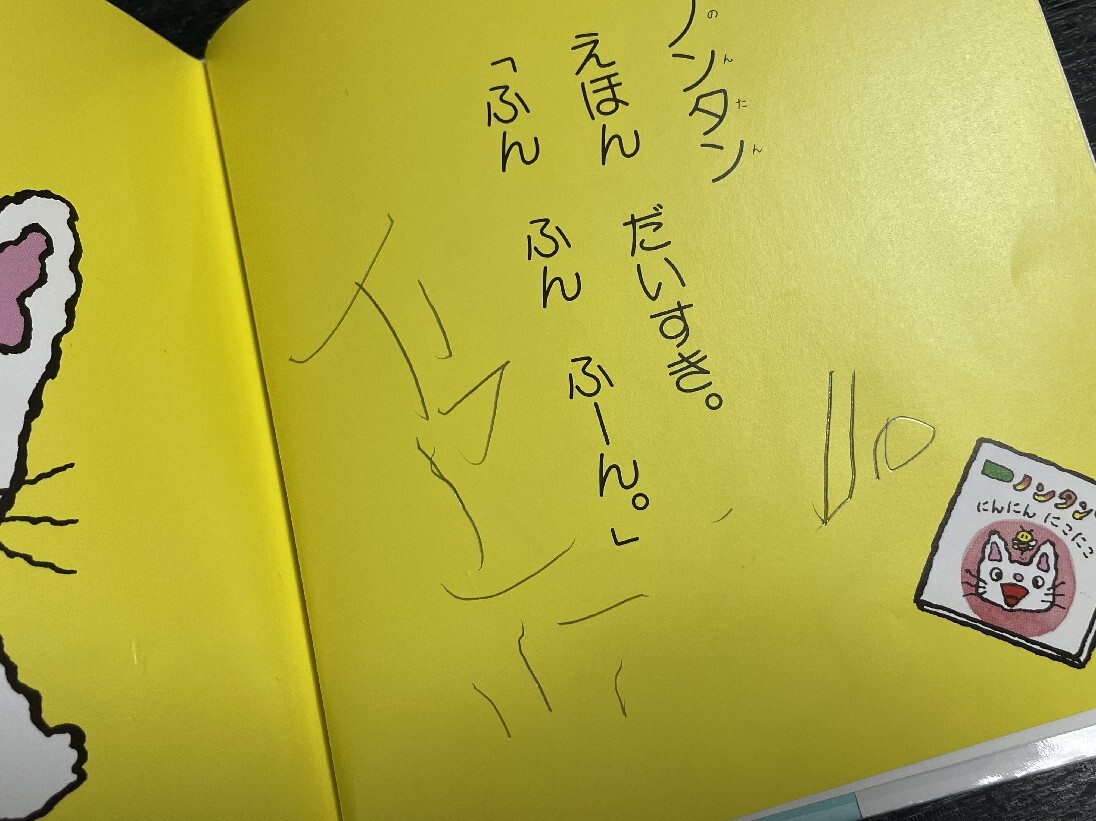 ノンタン
のんたん
えほん だいすき。
「ふん ふん ふーん。」
ノンタン
にんにん にこにこ